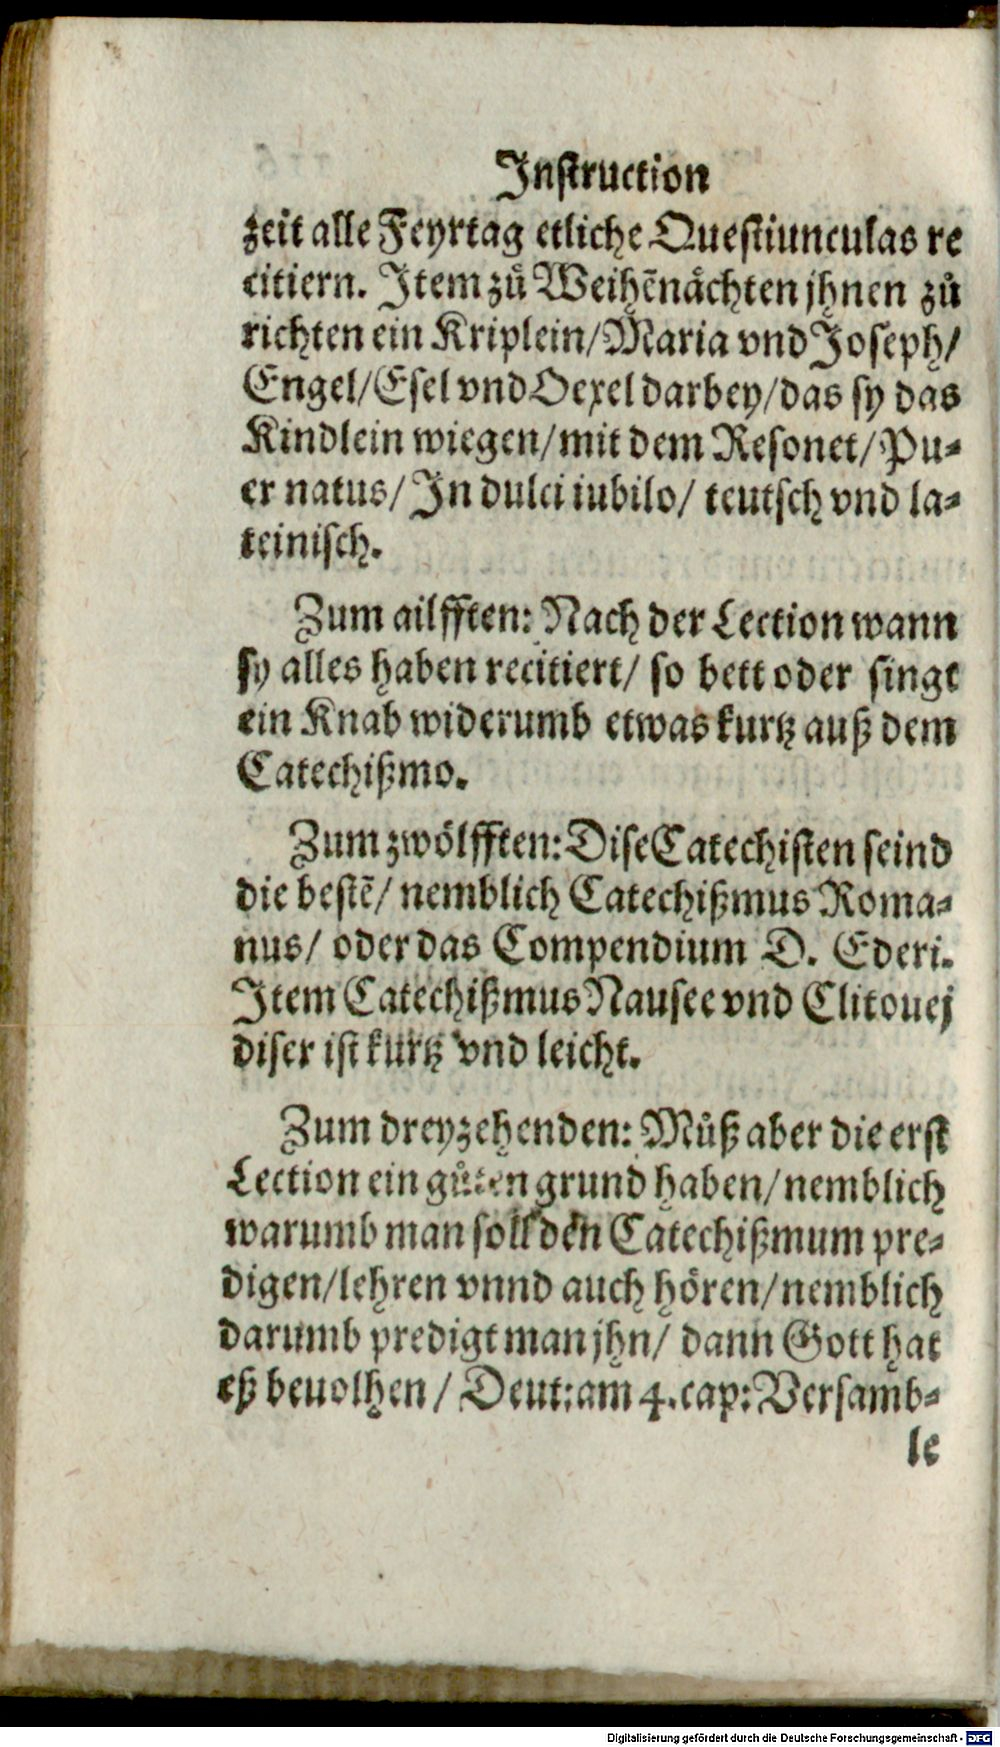 Instruction
zeit alle Feyrtag etliche Questiunculas re
citiern. Item zů Weihe̅nåchten jhnen zů
richten ein Kriplein/Maria vnd Joseph/
Engel/Esel vnd Oexel darbey/das sy das
Kindlein wiegen/mit dem Resonet/Pu-
er natus/In dulci iubilo/ teutsch vnd la-
teinisch.
Zum ailfften: Nach der Lection wann
sy alles haben recitiert/ so bett oder singt
ein Knab widerumb etwas kurtz auß dem
Catechißmo.
Zum zwölfften: Dise Catechisten seind
die beste̅/ nemblich Catechißmus Roma-
nus/ oder das Compendium D. Ederi.
Item Catechißmus Nausee vnd Clitouej
diser ist kurtz vnd leicht.
Zum dreyzehenden: Můß aber die erst
Lection ein gůten grund haben/nemblich
warumb man soll den Catechißmum pre-
digen/lehren vnnd auch hören/nemblich
darumb predigt man jhn/ dann Gott hat
eß beuolhen/ Deut: am 4. cap: Versamb-
le
Digitalisierung gefördert durch die Deutsche Forschungsgemeinschaft - DFG